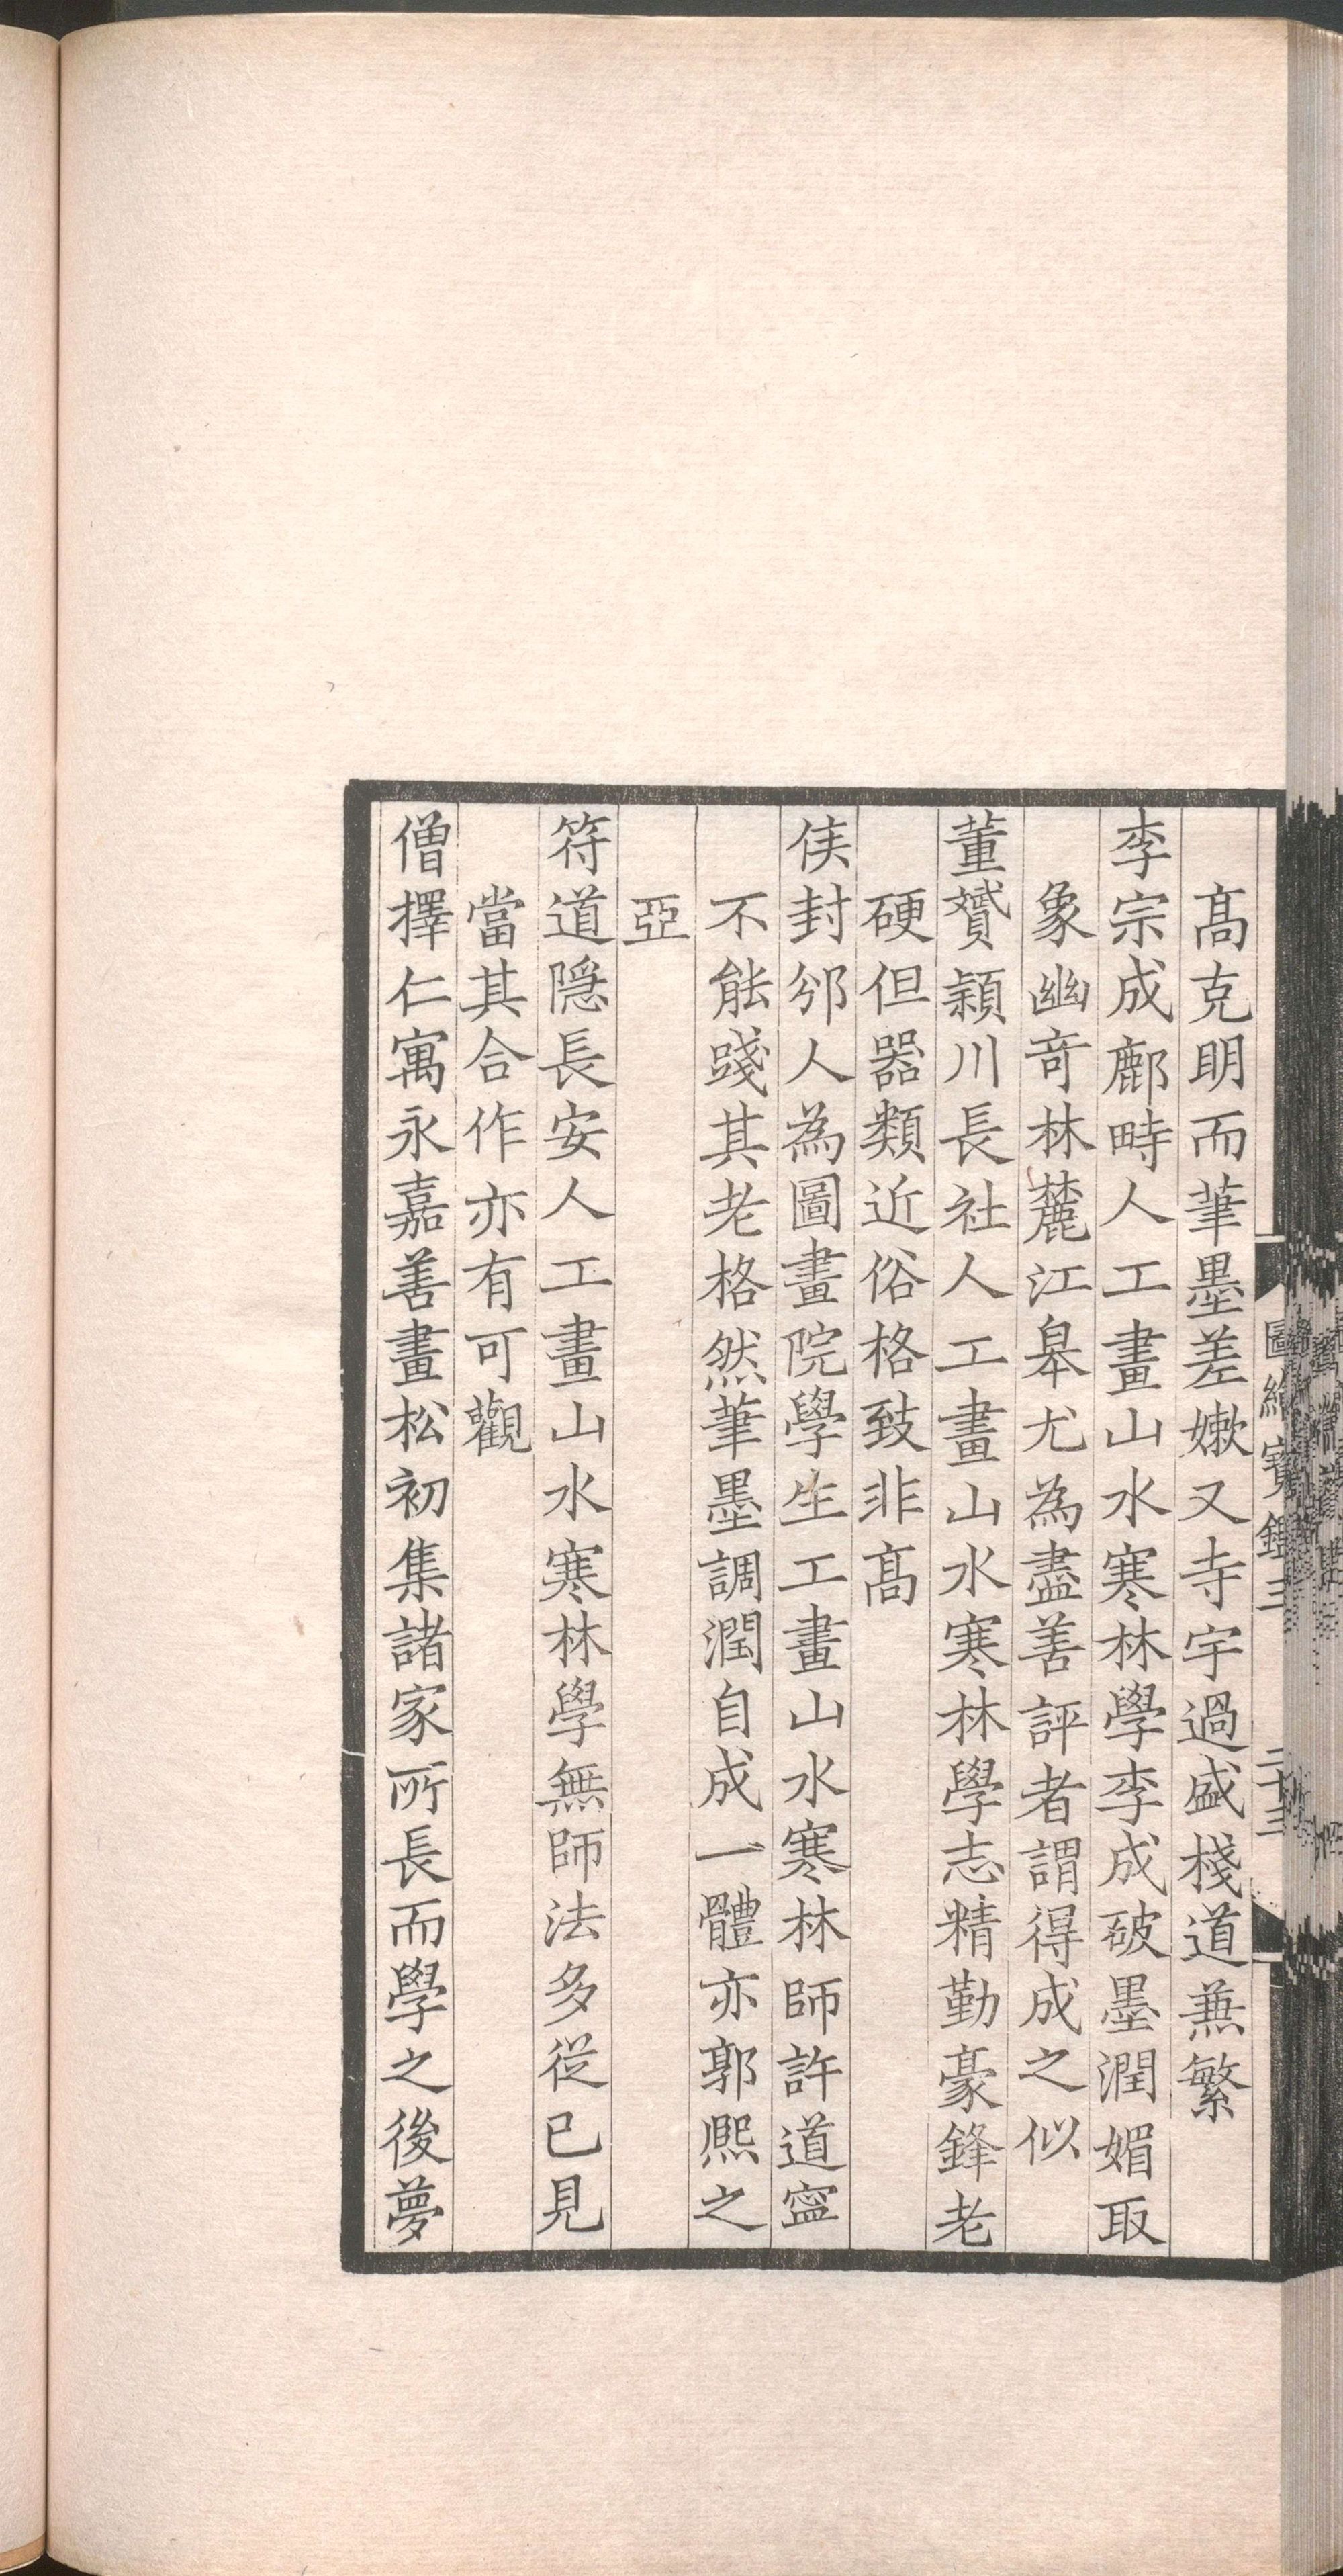 髙克明而筆墨差嫰又寺宇過盛棧道蕪繁
李宗成鄜畤人工畫山水寒林學李成破墨潤媚取
象幽竒林麓江皋尤為盡善評者謂得成之似
董贇頴川長社人工畫山水寒林學志精勤豪鋒老
硬但器類近俗格致非髙
侯封邠人為圖畫院學生工畫山水寒林師許道寧
不能踐其老格然筆墨調潤自成一體亦郭熈之
亞
符道隠長安人工畫山水寒林學無師法多從已見
當其合作亦有可觀
僧擇仁寓永嘉善畫松初集諸家所長而學之後夢
圖繪寶鑑三
二十三